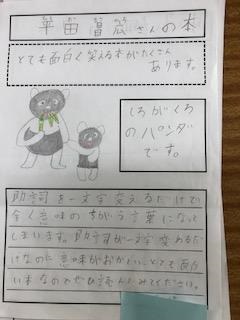 田 さんの本
とても面白く笑える本がたくさん
あります。
しろがくろ
のパンダ
です。
助詞を一文字変えるだけで
全く意味のちがう言葉になって
しまいます。助詞が一字変わるだ
けなのに意味がおかしい、とても面白
い本なのでぜひ読んでみてください。